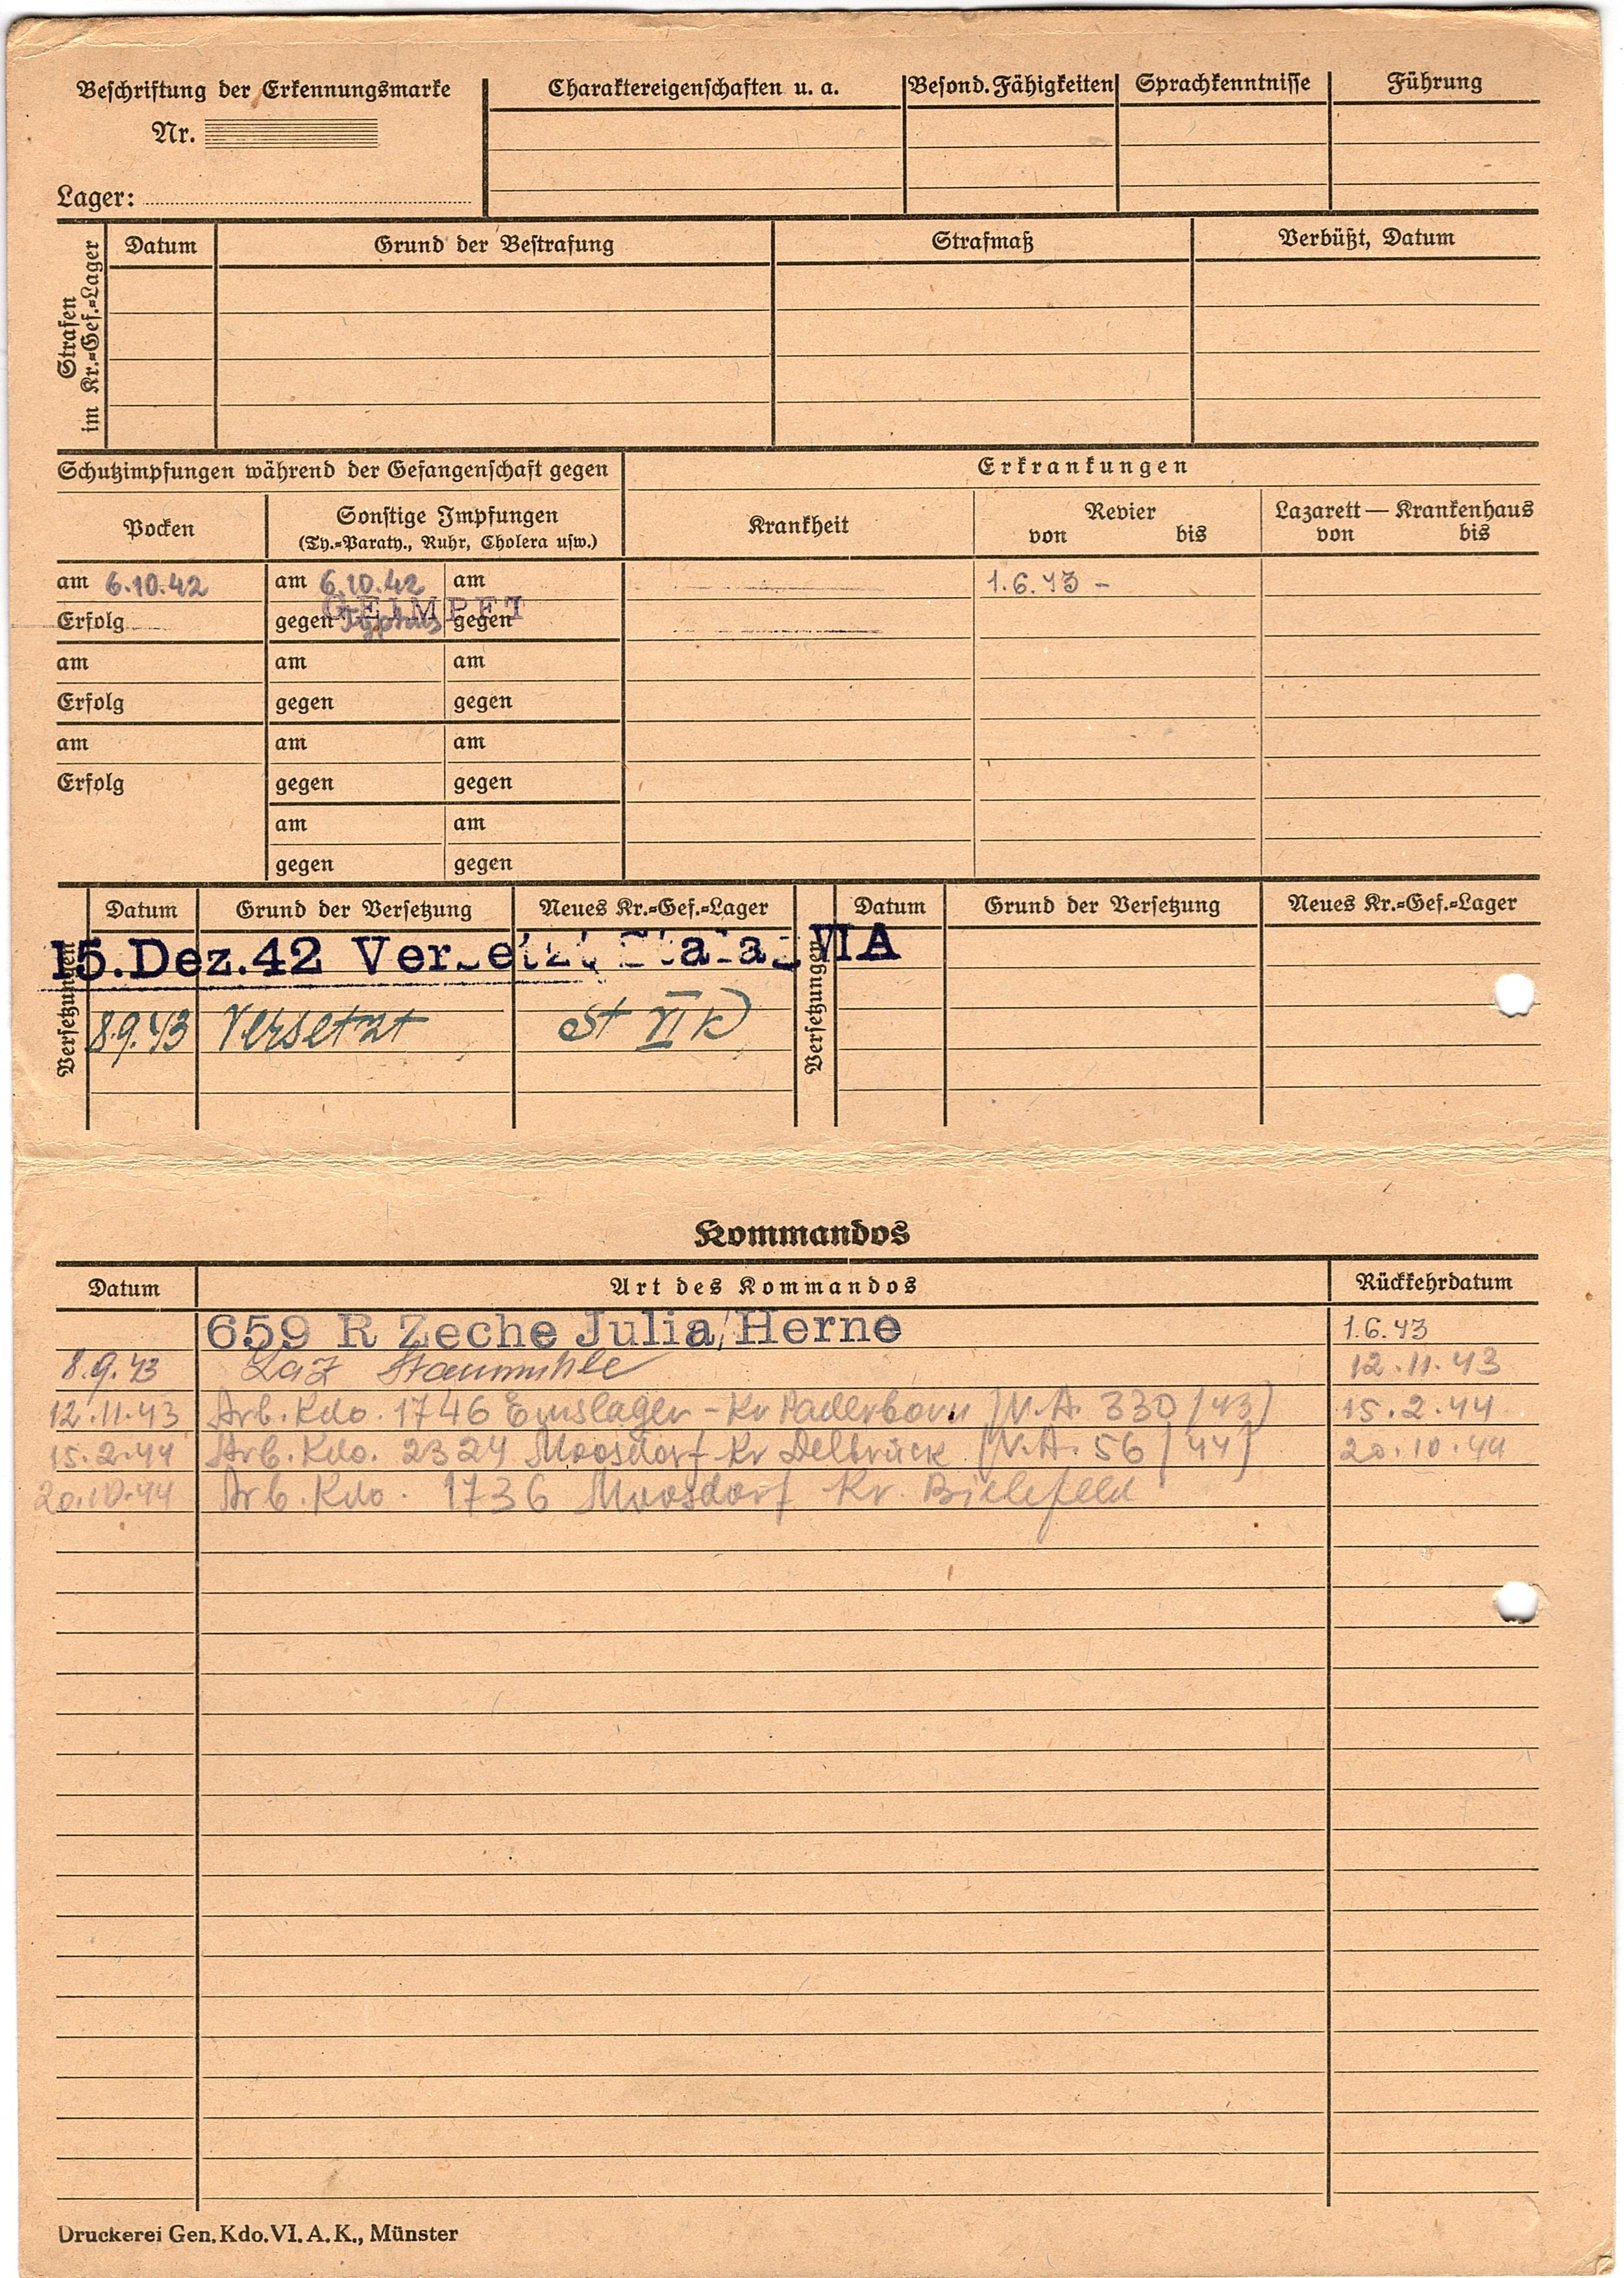 Beschriftung der Erkennungsmarke
Nr.
Lager:
Charaktereigenschaften u. a.
Besond. Fähigkeiten
Sprachkenntnisse
Führung
Strafen
im Kr.=Gef.=Lager
Datum
Grund der Bestrafung
Strafmaß
Verbüßt, Datum
Schutzimpfungen während der Gefangenschaft gegen
Erkrankungen
Pocken
Sonstige Impfungen
(Ty.=Paraty., Ruhr, Cholera usw.)
Krankheit
Revier
von bis
Lazarett — Krankenhaus
von bis
am 6.10.42 am 6.10.42 am 1.6.43 –
GEIMPFT
Erfolg gegen Typhus gegen
am am am
Erfolg gegen gegen
am am am
Erfolg gegen gegen
am am
gegen gegen
Versetzungen
Datum Grund der Versetzung Neues Kr.=Gef.=Lager
Versetzungen
Datum Grund der Versetzung Neues Kr.=Gef.=Lager
15.Dez.42 Versetzt Stalag VI A
8.9.43 Versetzt St VI K
Kommandos
Datum Art des Kommandos Rückkehrdatum
659 R Zeche Julia/Herne 1.6.43
8.9.43 Laz Staumühle 12.11.43
12.11.43 Arb. Kdo. 1746 Emslager - Kr Paderborn (V.A. 330/43) 15.2.44
15.2.44 Arb. Kdo. 2324 Moosdorf Kr Delbrück (V.A. 56/44) 20.10.44
20.10.44 Arb. Kdo. 1736 Moosdorf Kr. Bielefeld
Druckerei Gen. Kdo. VI. A. K., Münster